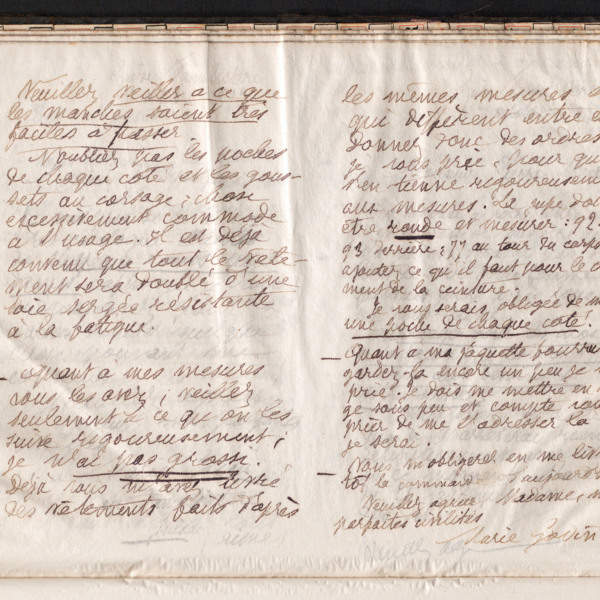 Veuillez veiller à ce que
les manches soient très
faciles à passer
N'oubliez pas les poches
de chaque côté et les gous-
sets au corsage ; chose
excessivement commode
à l'usage. Il est déjà
convenu que tout le vête-
ment sera doublé d'une
soie sergée résistante
à la fatigue.
— Quant à mes mesures
vous les avez ; veillez
seulement à ce qu'on les
suive rigoureusement,
je n'ai pas grossi.
Déjà vous m'avez livré
des vêtements faits d'après
les mêmes mesures
qui diffèrent entre
donner donc des ordres
je vous prie, pour qu
s'en tienne rigoureusement
aux mesures. La jupe doi
être ronde et mesurer : 92
93 derrière ; 77 au tour du corps
ajoutez ce qu'il faut pour le
ment de la ceinture.
Je vous serais obligée de m
une poche de chaque côté.
— Quant à ma jaquette pourri
garder-la encore un peu je
prie. Je dois me mettre en
ge sous peu et compte vou
prier de me l'adresser là
je serai.
— Vous m'obligerez en me
tôt la commande aujourd
Veuillez agréer Madame, m
parfaites civilités
Marie